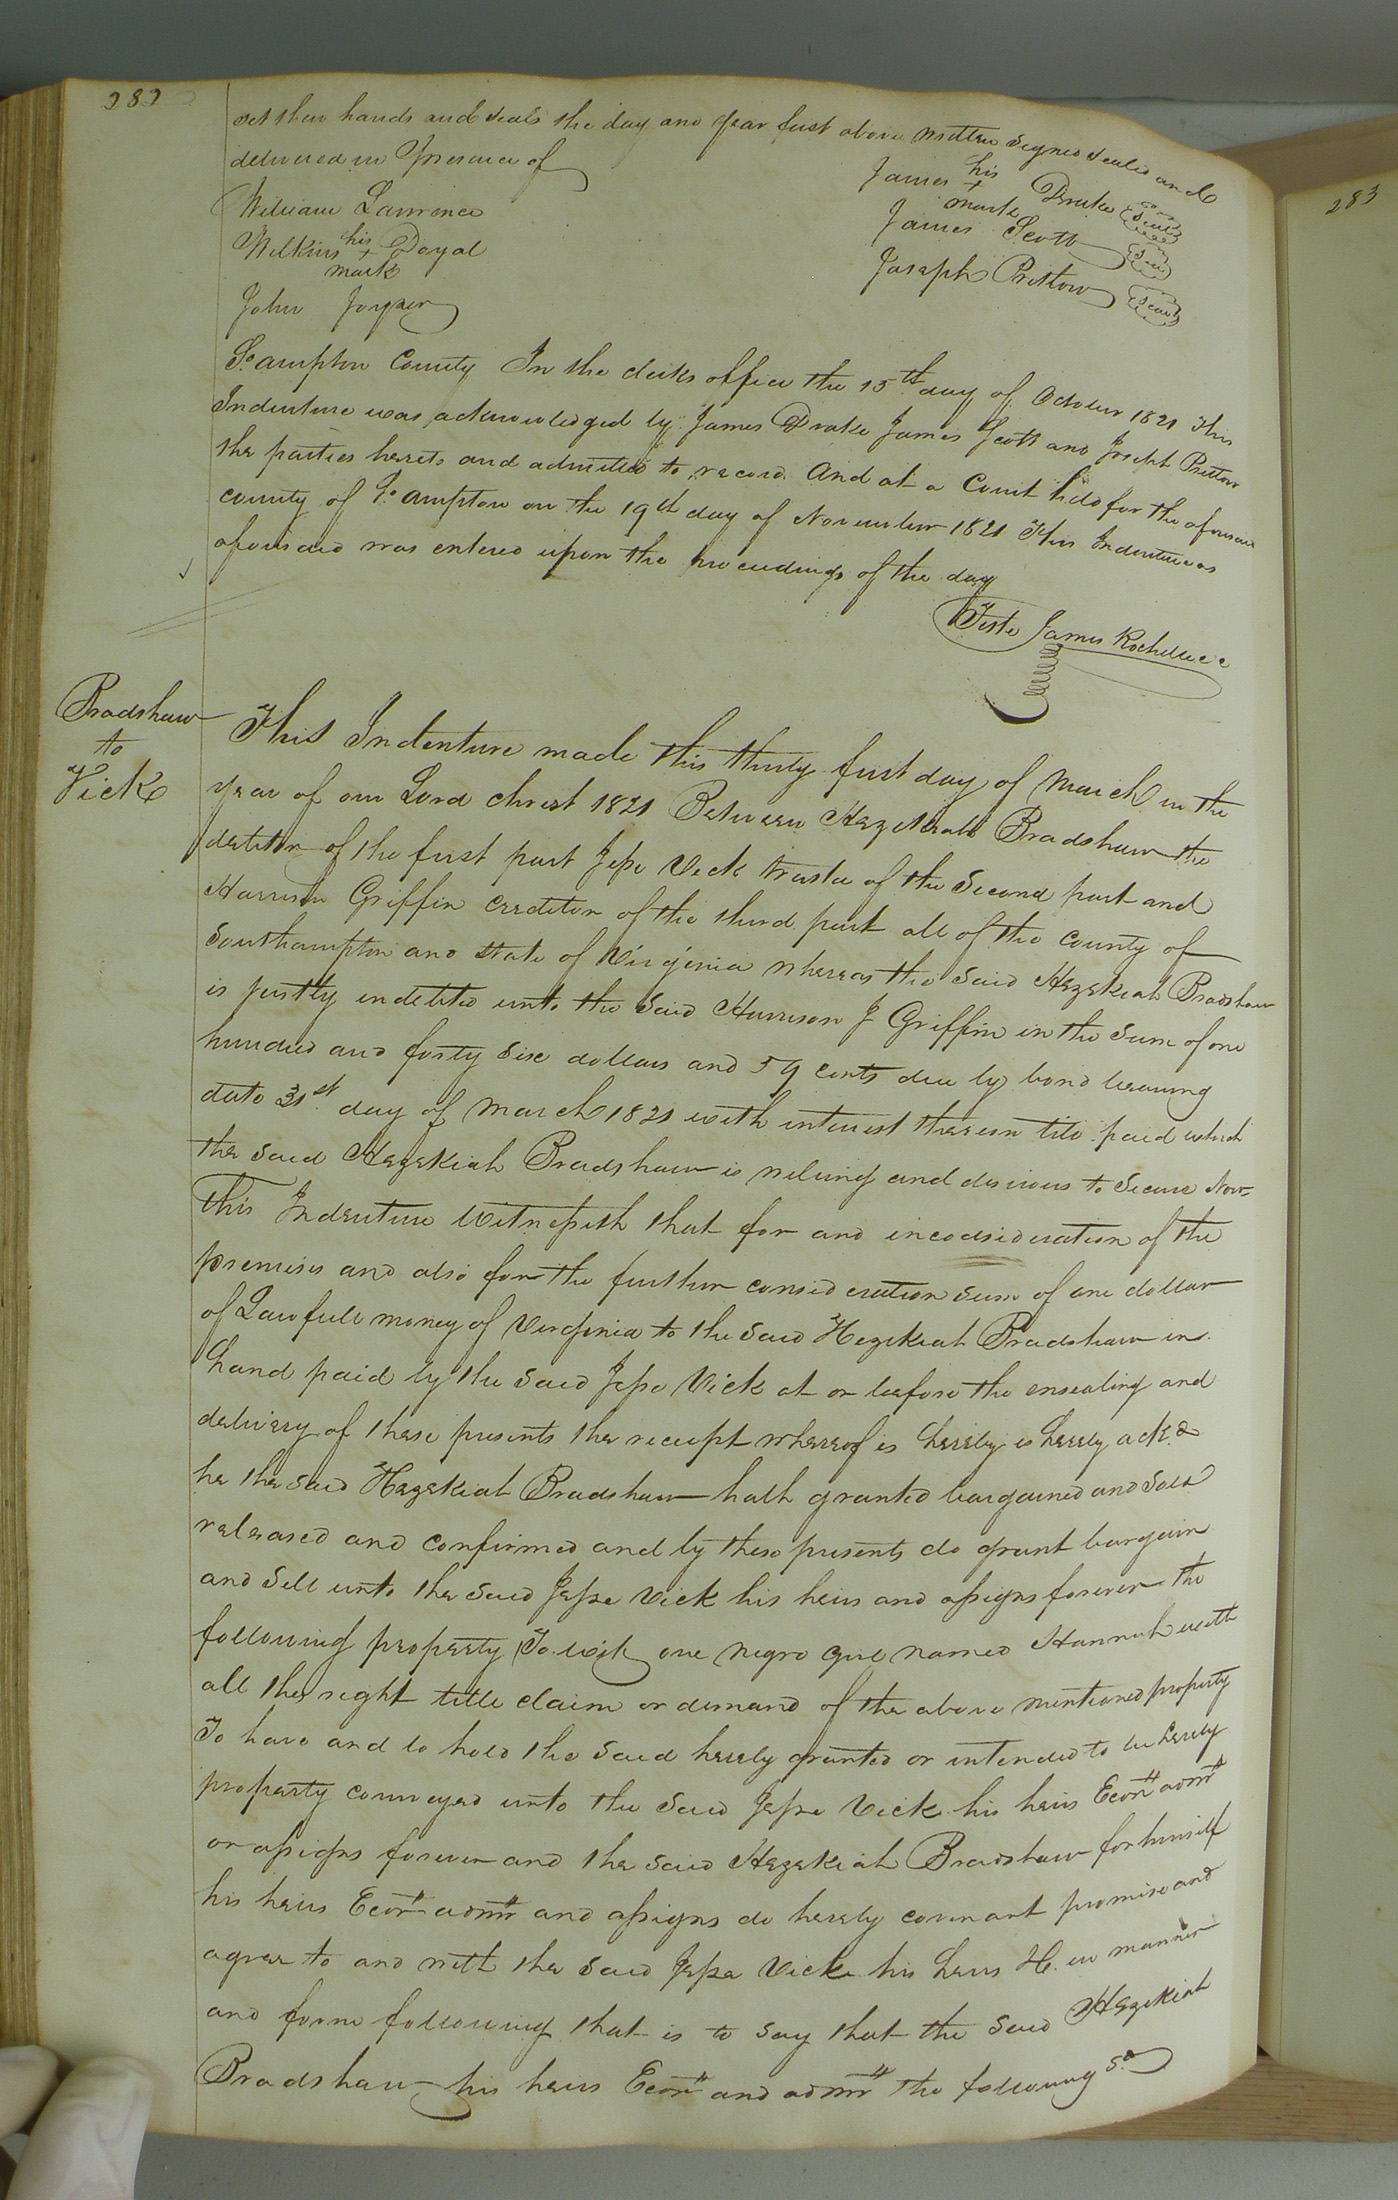 282
283
set their hands and seals the day and year first above written Signed Sealed and
delivered in Presence of
James his + mark Drake Seal
William Lawrence
James Scott Seal
Wilkins his + mark Doyal
Joseph Pretlow Seal
John Joyner
So.ampton County In the clerks office the 15th day of October 1821 This
Indenture was acknowledged by James Drake James Scott and Joseph Pretlow
the parties hereto and admitted to record. And at a Court held for the aforesaid
county of So.ampton on the 19th day of November 1821 This Indenture as
aforesaid was entered upon the proceedings of the day
Teste James Rochelle cc
Bradshaw
to
Vick
This Indenture made this thirty first day of March in the
year of our Lord Christ 1821 Between Hezekiah Bradshaw the
debtor of the first part Jesse Vick trustee of the Second part and
Harrison Griffin creditor of the third part all of the County of
Southampton and State of Virginia whereas the said Hezekiah Bradshaw
is justly indebted unto the said Harrison J Griffin in the Sum of one
hundred and forty six dollars and 59 cents due by bond bearing
date 31st. day of March 1821 with interest thereon till paid which
the said Hezekiah Bradshaw is willing and desirous to Secure Now
This Indenture Witnesseth that for and inconsideration of the
premises and also for the further consideration sum of one dollar
of Lawfull money of Virginia to the said Hezekiah Bradshaw in
hand paid by the said Jesse Vick at or before the ensealing and
delivery of these presents the receipt whereof is hereby is hereby ackd.
he the said Hezekiah Bradshaw hath granted bargained and Sold
released and confirmed and by these presents do grant bargain
and Sell unto the said Jesse Vick his heirs and assigns forever the
following property To.wit one negro girl named Hannah with
all the right title claim or demand of the above mentioned property
To have and to hold the said hereby granted or intended to be hereby
property conveyed unto the said Jesse Vick his heirs Ecors admrs
or assigns forever and the said Hezekiah Bradshaw for himself
his heirs Ecors admrs and assigns do hereby covenant promise and
agree to and with the said Jesse Vick his heirs &c. in manner
and form following that is to say that the said Hezekiah
Bradshaw his heirs Ecors and admrs the following sd